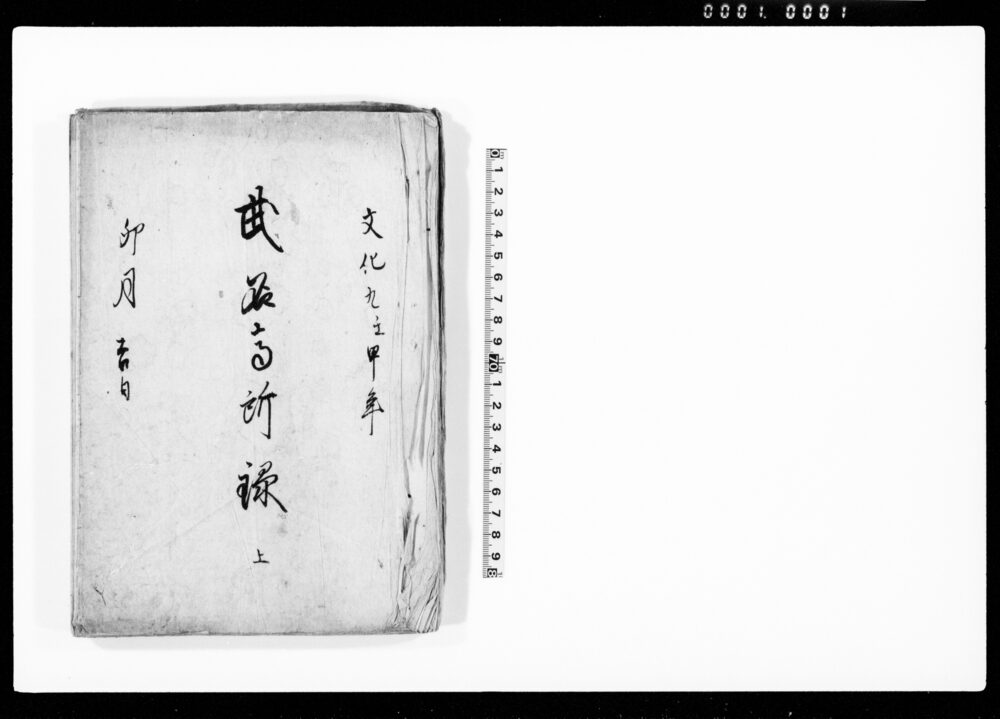 0001. 0001
文化九壬申年
武 録 上
卯月 吉日
0 1 2 3 4 5 6 7 8 9 10 1 2 3 4 5 6 7 8 9